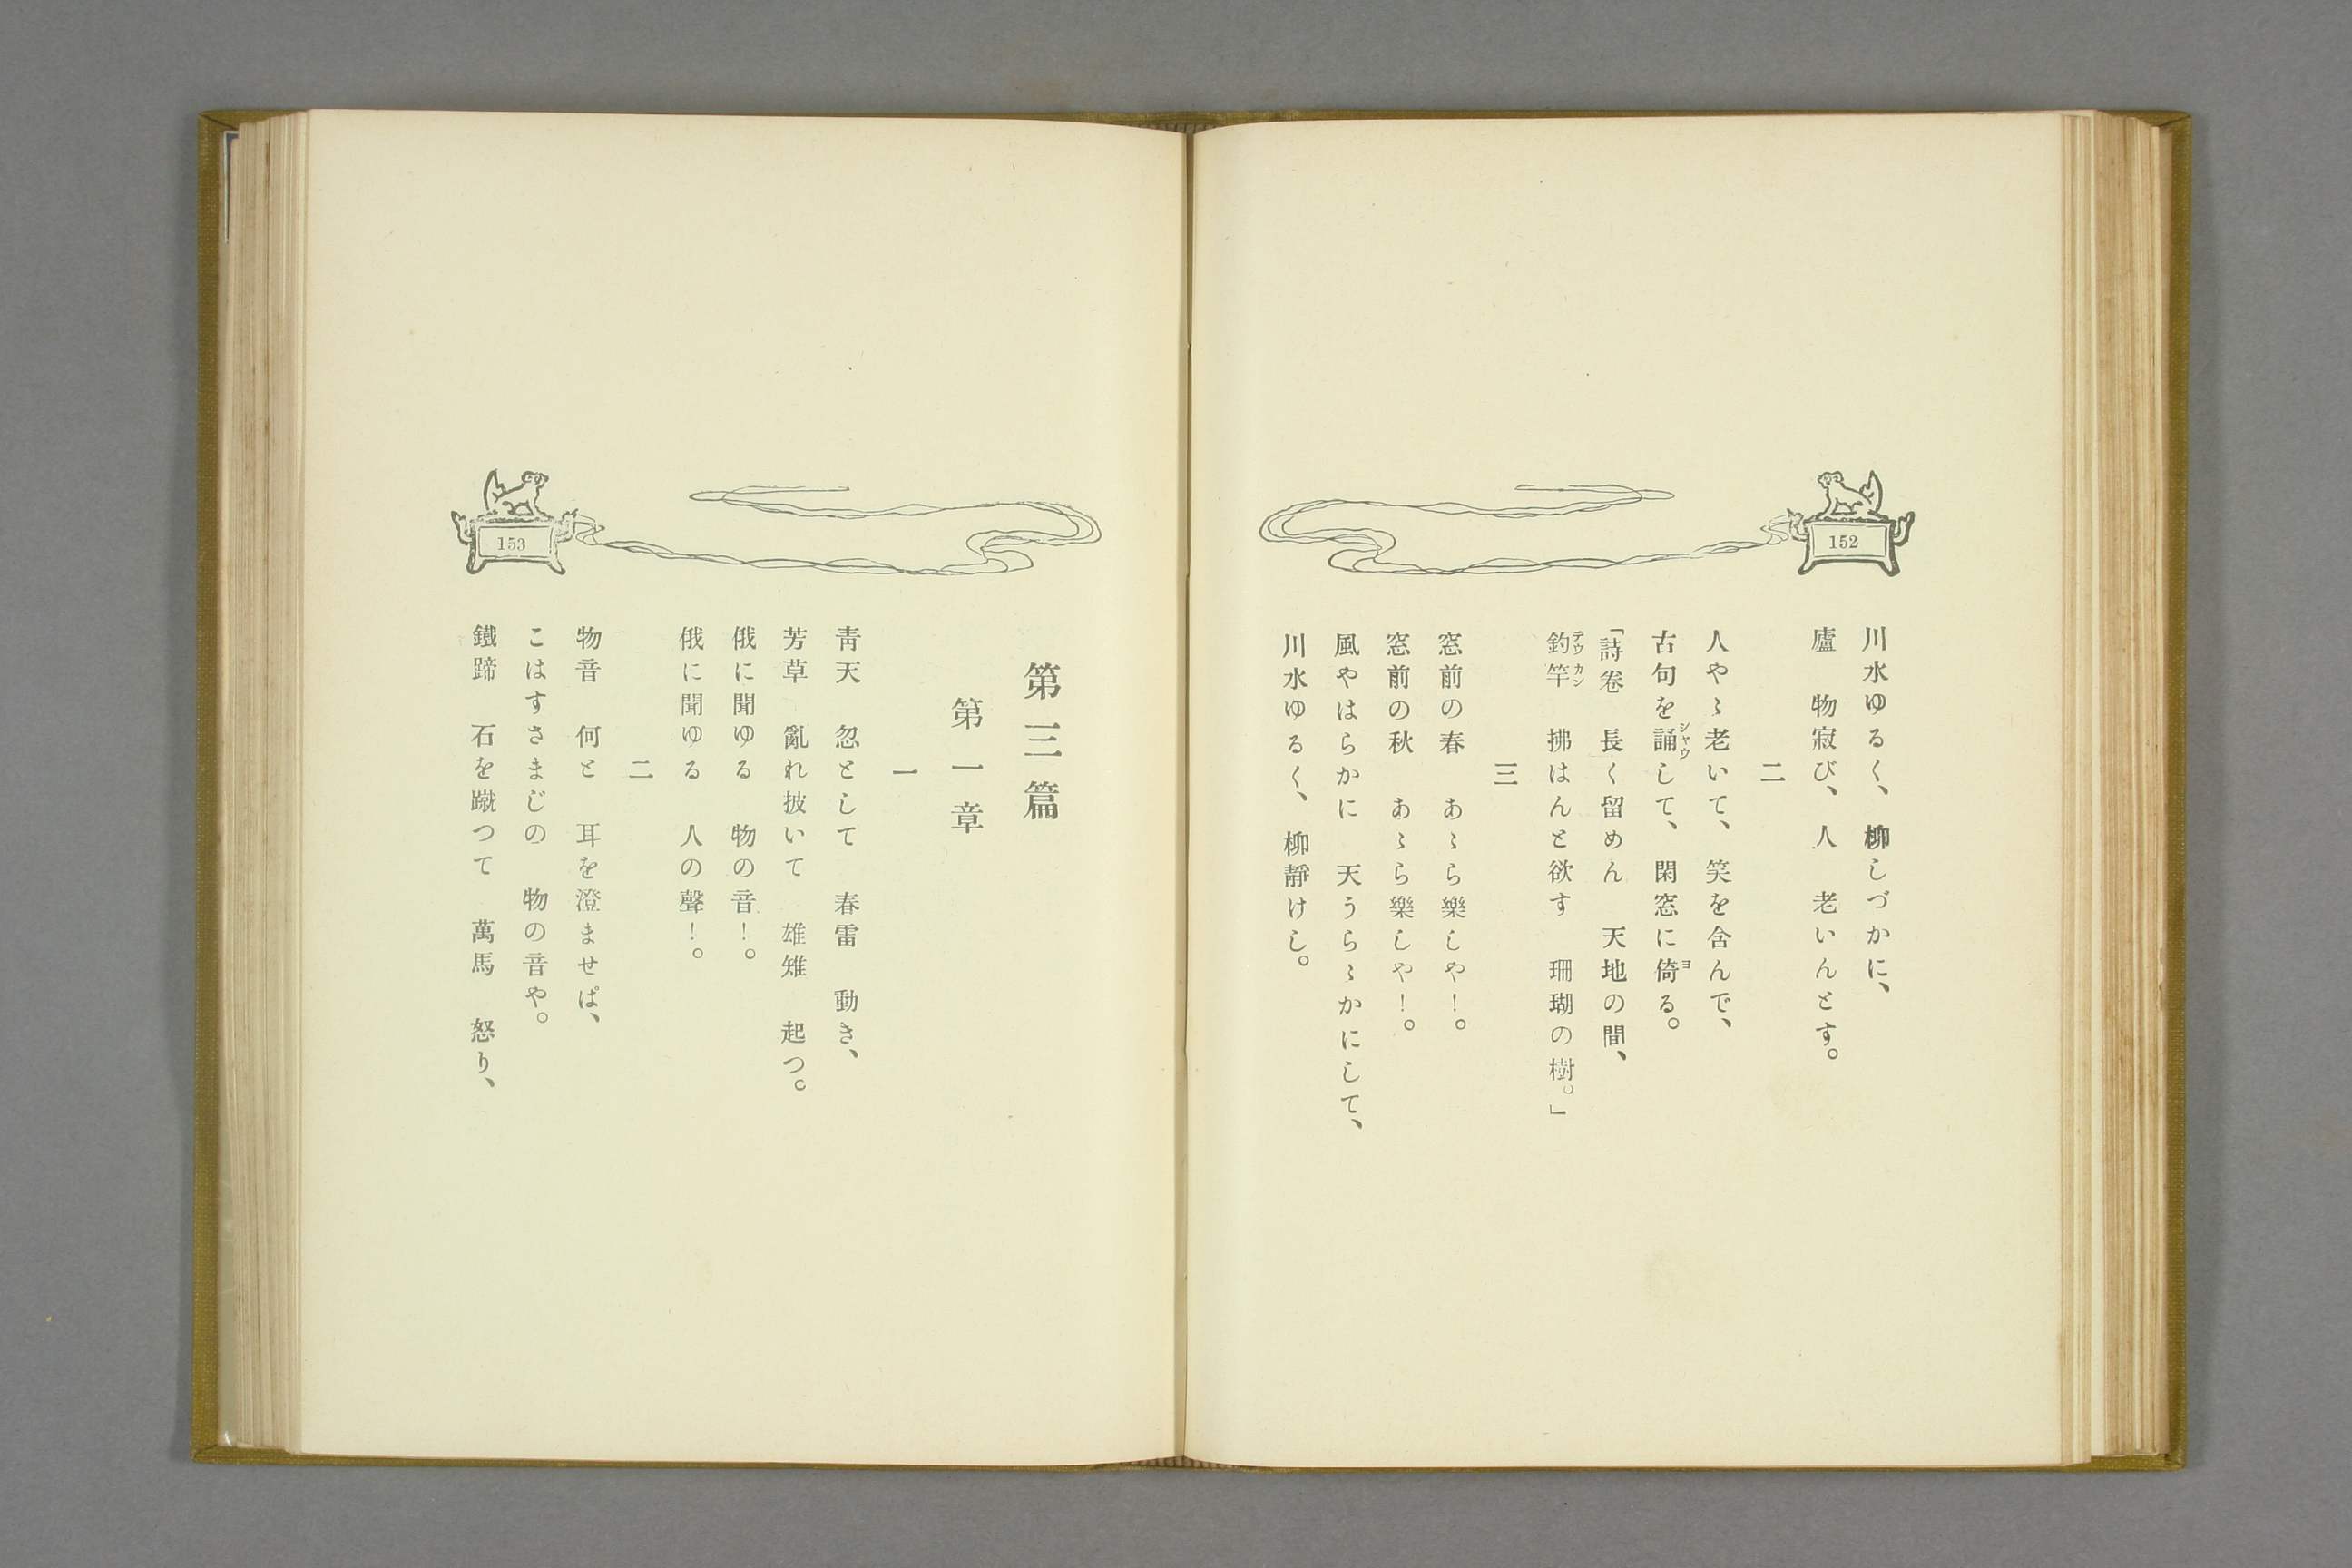 152
川水ゆるく、柳しづかに、
廬　物寂び、人　老いんとす。
二
人やゝ老いて、笑を含んで、
古句を誦シヤウして、閑窓に倚ヨる。
「詩卷　長く留めん　天地の間、
釣竿テウカン　拂はんと欲す　珊瑚の樹。」
三
窓前の春　あゝら樂しや！。
窓前の秋　あゝら樂しや！。
風やはらかに　天うらゝかにして、
川水ゆるく、柳靜けし。
153
第三篇
第一章
一
靑天　忽として　春雷　動き、
芳草　亂れ披いて　雄雉　起つ。
俄に聞ゆる　物の音！。
俄に聞ゆる　人の聲！。
二
物音　何と　耳を澄ませば、
こはすさまじの　物の音や。
鐵蹄　石を蹴つて　萬馬　怒り、